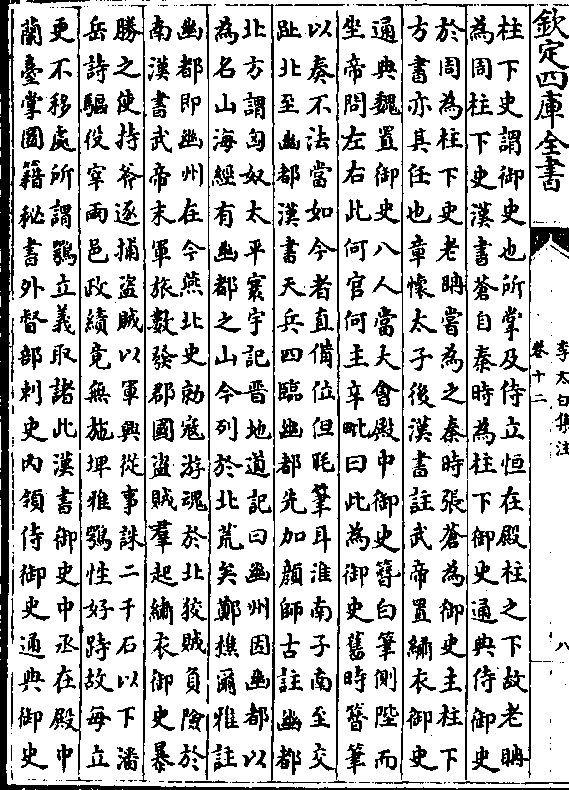 欽定四庫全書
李太白集注
卷十二
八
柱下史謂御史也所掌及侍立恒在殿柱之下故老聃
為周柱下史漢書蒼自秦時為柱下御史通典侍御史
於周為柱下史老聃嘗為之秦時張蒼為御史主柱下
方書亦其任也章懷太子後漢書註武帝置繡衣御史
通典魏置御史八人當大會殿中御史簪白筆側陛而
坐帝問左右此何官何主辛毗曰此為御史舊時簪筆
以奏不法當如今者直備位但毦筆耳淮南子南至交
趾北至幽都漢書天兵四臨幽都先加顏師古註幽都
北方謂匈奴太平寰宇記晉地道記曰幽州因幽都以
為名山海經有幽都之山今列於北荒矣鄭樵爾雅註
幽都即幽州在今燕北史勍寇游魂於北狡賊負險於
南漢書武帝末軍旅數發郡國盜賊羣起繡衣御史暴
勝之使持斧逐捕盜賊以軍興從事誅二千石以下潘
岳詩驅役宰兩邑政績竟無施埤雅鶚性好跱故每立
更不移處所謂鶚立義取諸此漢書御史中丞在殿中
蘭臺掌圖籍秘書外督部刺史內領侍御史通典御史